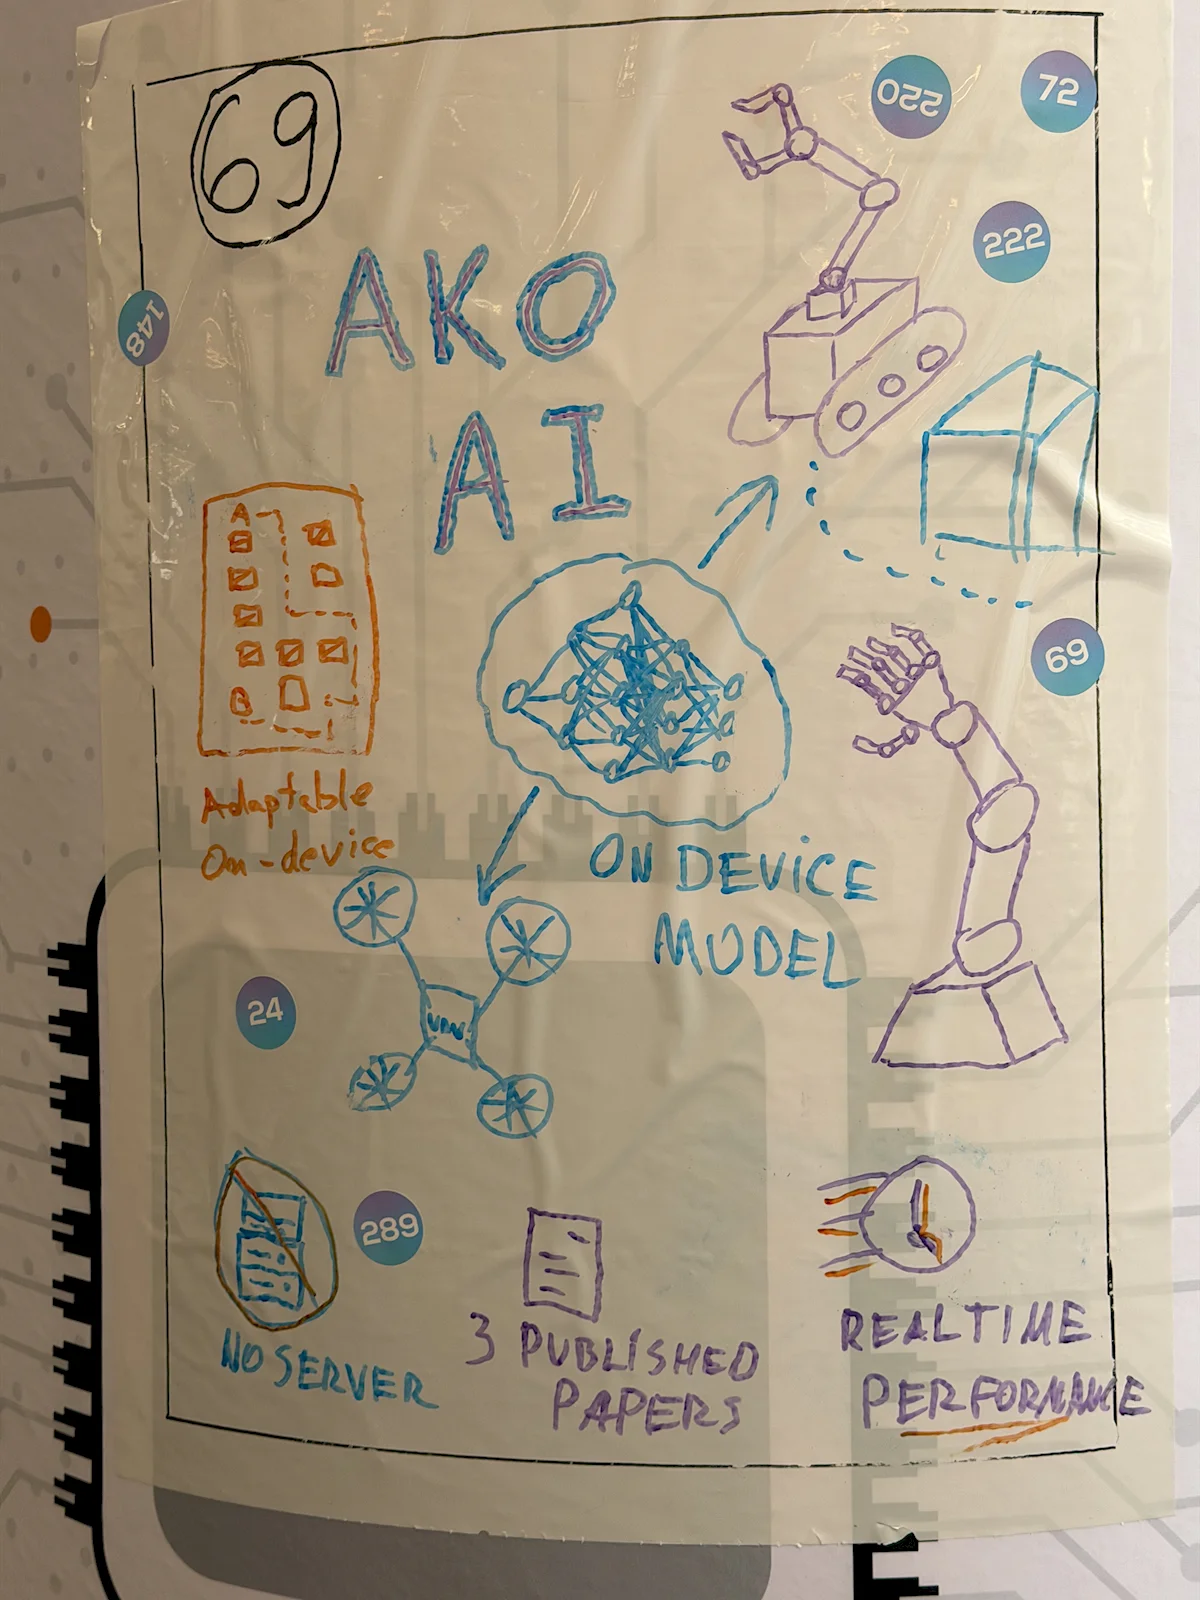 69
220
72
222
148
AKO
AI
A
B
69
Adaptable
On-device
ON DEVICE
MODEL
24
289
NO SERVER
3 PUBLISHED
PAPERS
REALTIME
PERFORMANCE